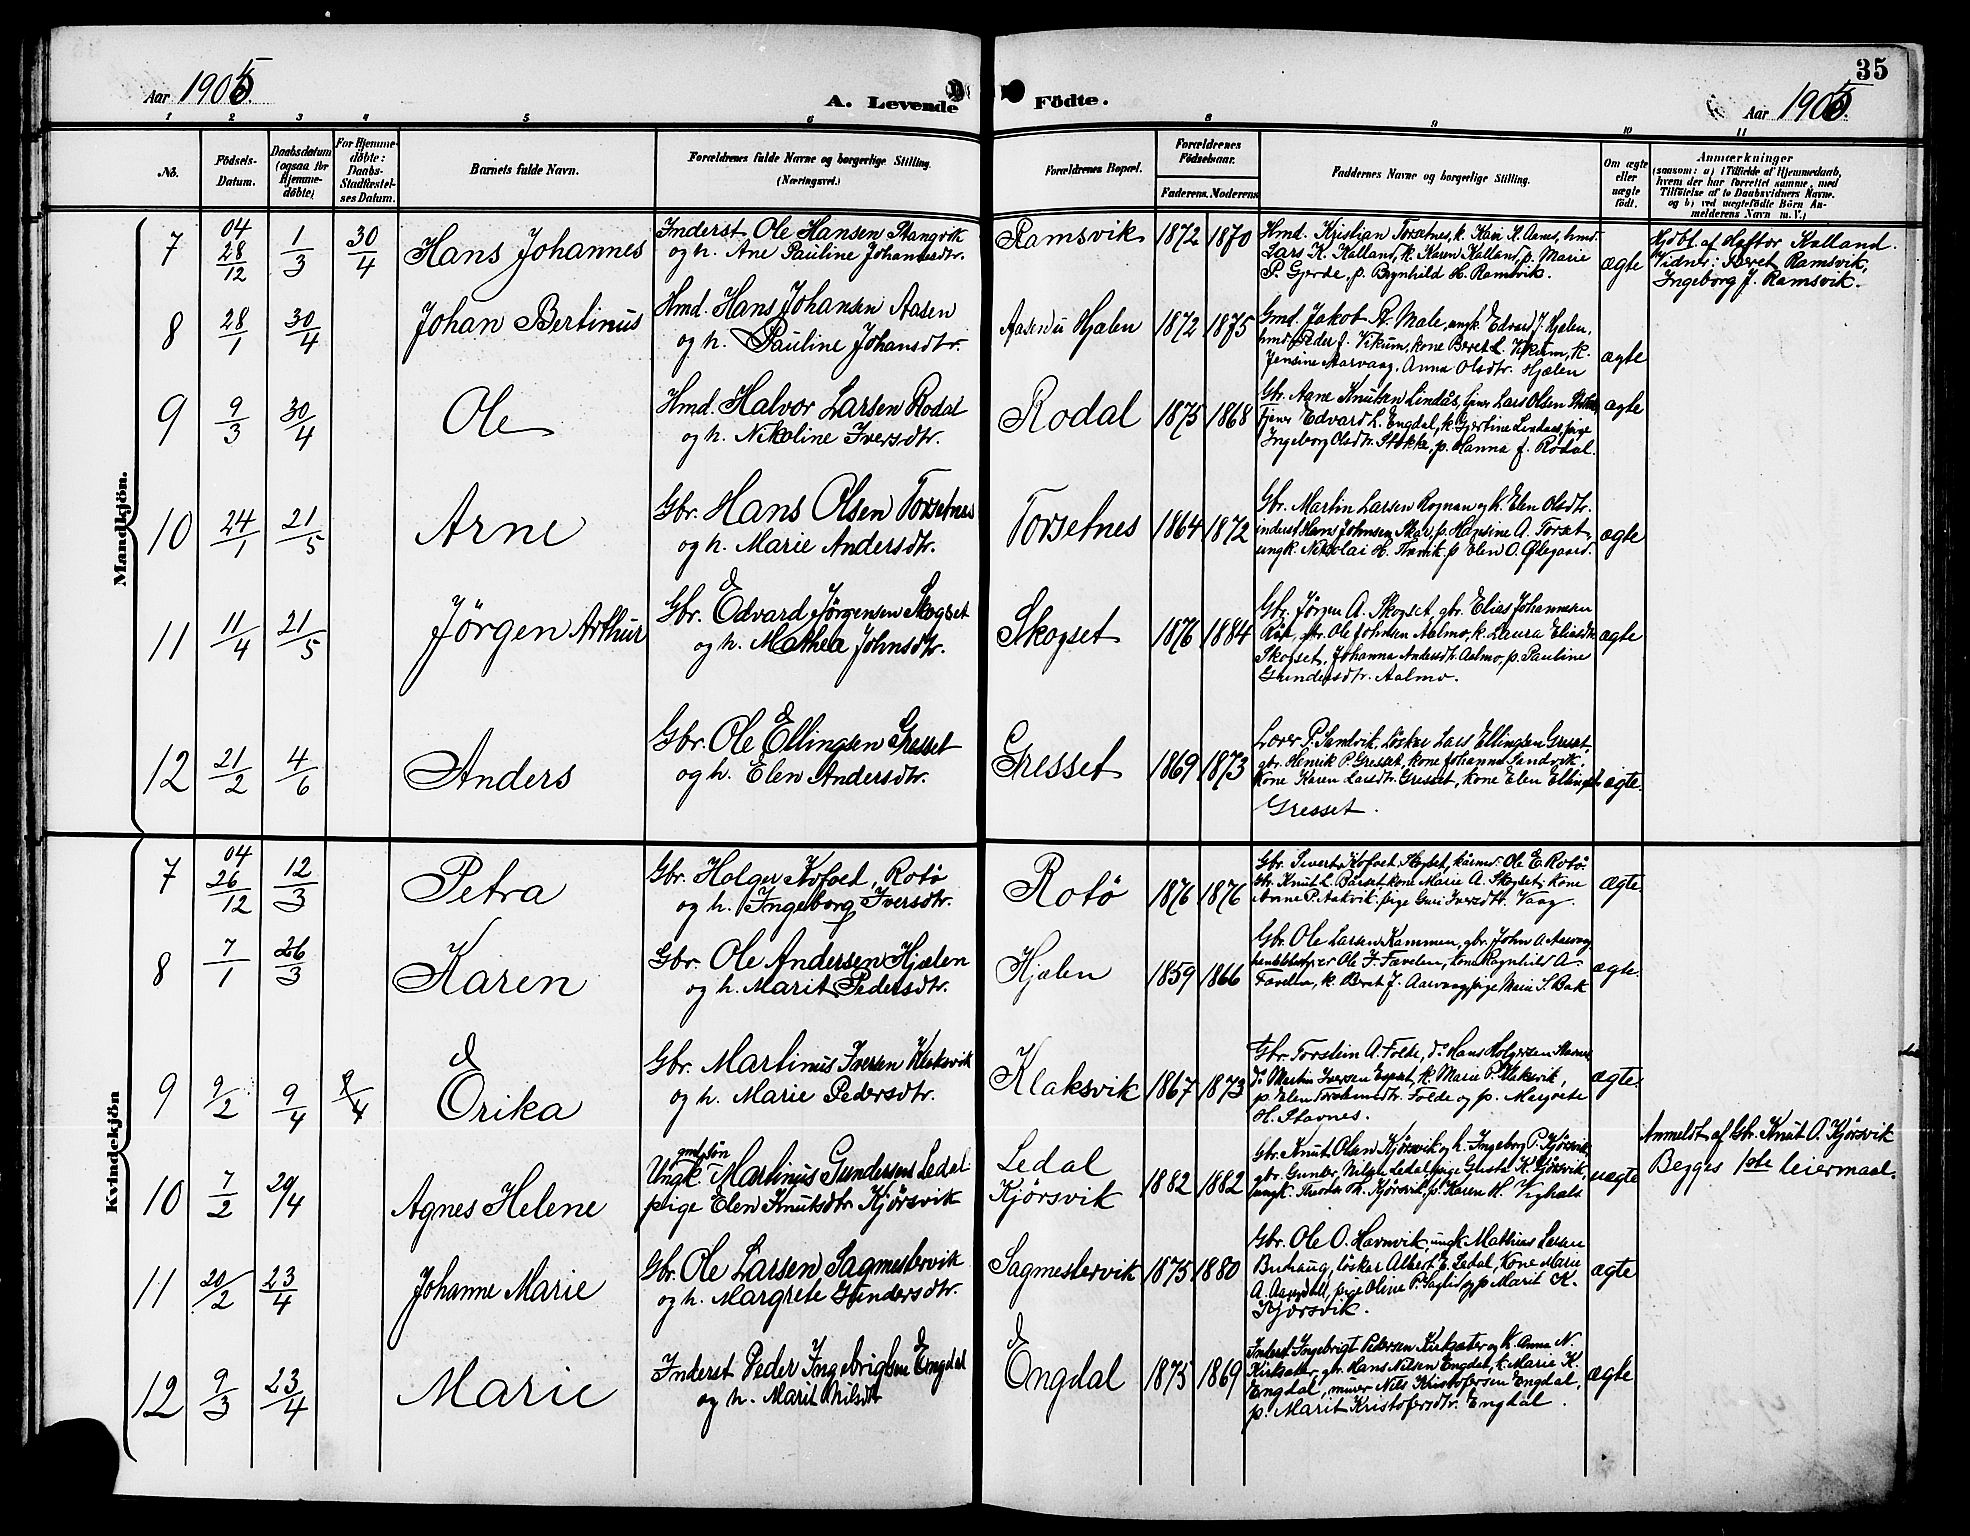 35
Aar 1905.
A. Levende
Fødte.
Aar 1905.
1 2 3 4 5 6 8 9 10 11
No.
Fødsels-Datum.
Daabsdatum (ogsaa for Hjemme-døbte)
For Hjemme-døbte: Daabs-Stadfæstel-ses Datum.
Barnets fulde Navn.
Forældrenes fulde Navne og borgerlige Stilling.
(Næringsvei.)
Forældrenes Bopæl.
Forældrenes Fødselsaar.
Faderens. Moderens
Faddernes Navne og borgerlige Stilling.
Om ægte eller uægte født.
Anmærkninger
(saasom: a) i Tilfælde af Hjemmedaab,
hvem der har forrettet samme, med
Tilføielse af to Daabsvidners Navne.
og b) ved uægtefødte Børn An-
melderens Navn m. V.)
Mandkjön.
7 04 28/12 1/3 30/4 Hans Johannes
Inderst Ole Hansen Stangvik
og h. Ane Pauline Johansdtr.
Ramsvik 1872 1870
Hmd. Kristian Torsetnes, k. Kari K. Aanes, hmd.
Lars K. Kalland, k. Karen Kalland, p. Marie
P. Gjerde, p. Brynhild H. Ramsvik.
ægte
Hjdbt. af Haftor Kalland.
Vidner: Beret Ramsvik,
Ingeborg J. Ramsvik.
8 28/1 30/4 Johan Bertinus
Hmd. Hans Johansen Aasen
og h. Pauline Johansdtr.
Aasen u Hjælen 1872 1875
Gmd. Jakob R. Male, ungk. Edvard J. Hjælen,
hmd. Peder J. Vikum, kone Beret L. Vikum, k.
Jensine Aarvaag, Anna Olsdtr. Hjælen
ægte
9 9/3 30/4 Ole
Hmd. Halvor Larsen Rodal
og h. Nikoline Iversdtr.
Rodal 1875 1868
Gbr. Aane Knutsen Lindås, tjener Lars Olsen
tjener Edvard L. Engdal, k. Gjertine Lindaas, pige
Ingeborg Olsdtr. Stokke, p. Hanna J. Rodal.
ægte
10 24/1 21/5 Arne
Gbr. Hans Olsen Torsetnes
og h. Marie Andersdtr.
Torsetnes 1864 1872
Gbr. Martin Larsen Rognan og k. Elen Olsdtr.
inderst Hans Johnsen Skar, p. Hansine A. Torset,
ungk. Nikolai H. p. Elen O. Ødegaard.
ægte
11 11/4 21/5 Jörgen Arthur
Gbr. Edvard Jørgensen Skogset
og h. Mathea Johnsdtr.
Skogset 1876 1884
Gbr. Jørgen A. Skogset, gbr. Elias Johannesen
Ole Johnsen Aalmo, k. Laura Eliasdtr
Skogset, Johanna Andersdtr. Aalmo, p. Pauline
Gundersdtr. Aalmo.
ægte
12 21/2 4/6 Anders
Gbr. Ole Ellingsen Gresset
og h. Elen Andersdtr.
Gresset 1869 1873
P. Sandvik, Løsker Lars Ellingsen Gresset,
gbr. Henrik P. Gresset, kone Johanna Sandvik,
kone Karen Larsdtr. Gresset, kone Elen
Gresset.
ægte.
Kvindekjön
7 04 26/12 12/3 Petra
Gbr. Holger Kofoed, Rotø
og h. Ingeborg Iversdtr.
Rotø 1876 1876
Gbr. Sivert Kofoet Skogset, kårmd. Ole E. Rotø.
Gbr. Knut L. Bårset, kone Marie A. Skogset, kone
Anne P. Aakvik. pige Guri Iversdtr. Vaag.
ægte.
8 7/1 26/3 Karen
Gbr. Ole Andersen Hjælen
og h. Marit Pedersdtr.
Hjælen 1859 1866
Gbr. Ole Larsen Kammen, gbr. John A. Aarvaag
Ole J. Tævelen, kone Ragnhild A
k. Beret J. Aarvaag, pige Marie S. Bak
ægte.
9 9/2 9/4 9/4 Erika
Gbr. Martinus Iversen Klaksvik
og h. Marie Pedersdtr.
Klaksvik 1867 1873
Gbr. Torstein A. Folde, do Hans Holgersen
do Martin Iversen Espset, k. Marie P. Klaksvik,
p. Elen Torsteinsdtr. Folde og p. Margrete
H. Stavnes.
ægte.
10 7/2 20/4 Agnes Helene
gmdssön
Ungk. Martinus Gundersen Ledal
pige Elen Knutsdtr. Kjørsvik
Ledal
Kjörsvik 1882 1882
Gbr. Knut Olsen Kjörsvik og h. Ingeborg P. Kjörsvik,
gbr. Gunder Nilsen Ledal, pige Gusta K. Kjörsvik,
ungk. Theodor Th. Kjörsvik, p. Karen H. Vighals
uægte
Anmeldt af Gbr. Knut O. Kjörsvik
Begges 1ste leiermaal.
11 20/2 23/4 Johanne Marie
Gbr. Ole Larsen Sagmestervik
og h. Margrete Gundersdtr.
Sagmestervik 1875 1880
Gbr. Ole O. Havnvik, ungk Mathias Larsen
Buhaug, løsker Albert E. Ledal, Kone Marie
A. pige Oline P. og p. Marit K.
Kjörsvik.
ægte
12 9/3 23/4 Marie
Inderst Peder Ingebrigtsen Engdal
og h. Marit Nilsdtr
Engdal 1875 1869
Inderst Ingebrigt Petersen Kirksæter og k. Anna N.
Kirksæter, gbr. Hans Nilsen Engdal, k. Marie K.
Engdal, murer Nils Kristofersen Engdal,
p. Marit Kristofersdtr. Engdal.
ægte